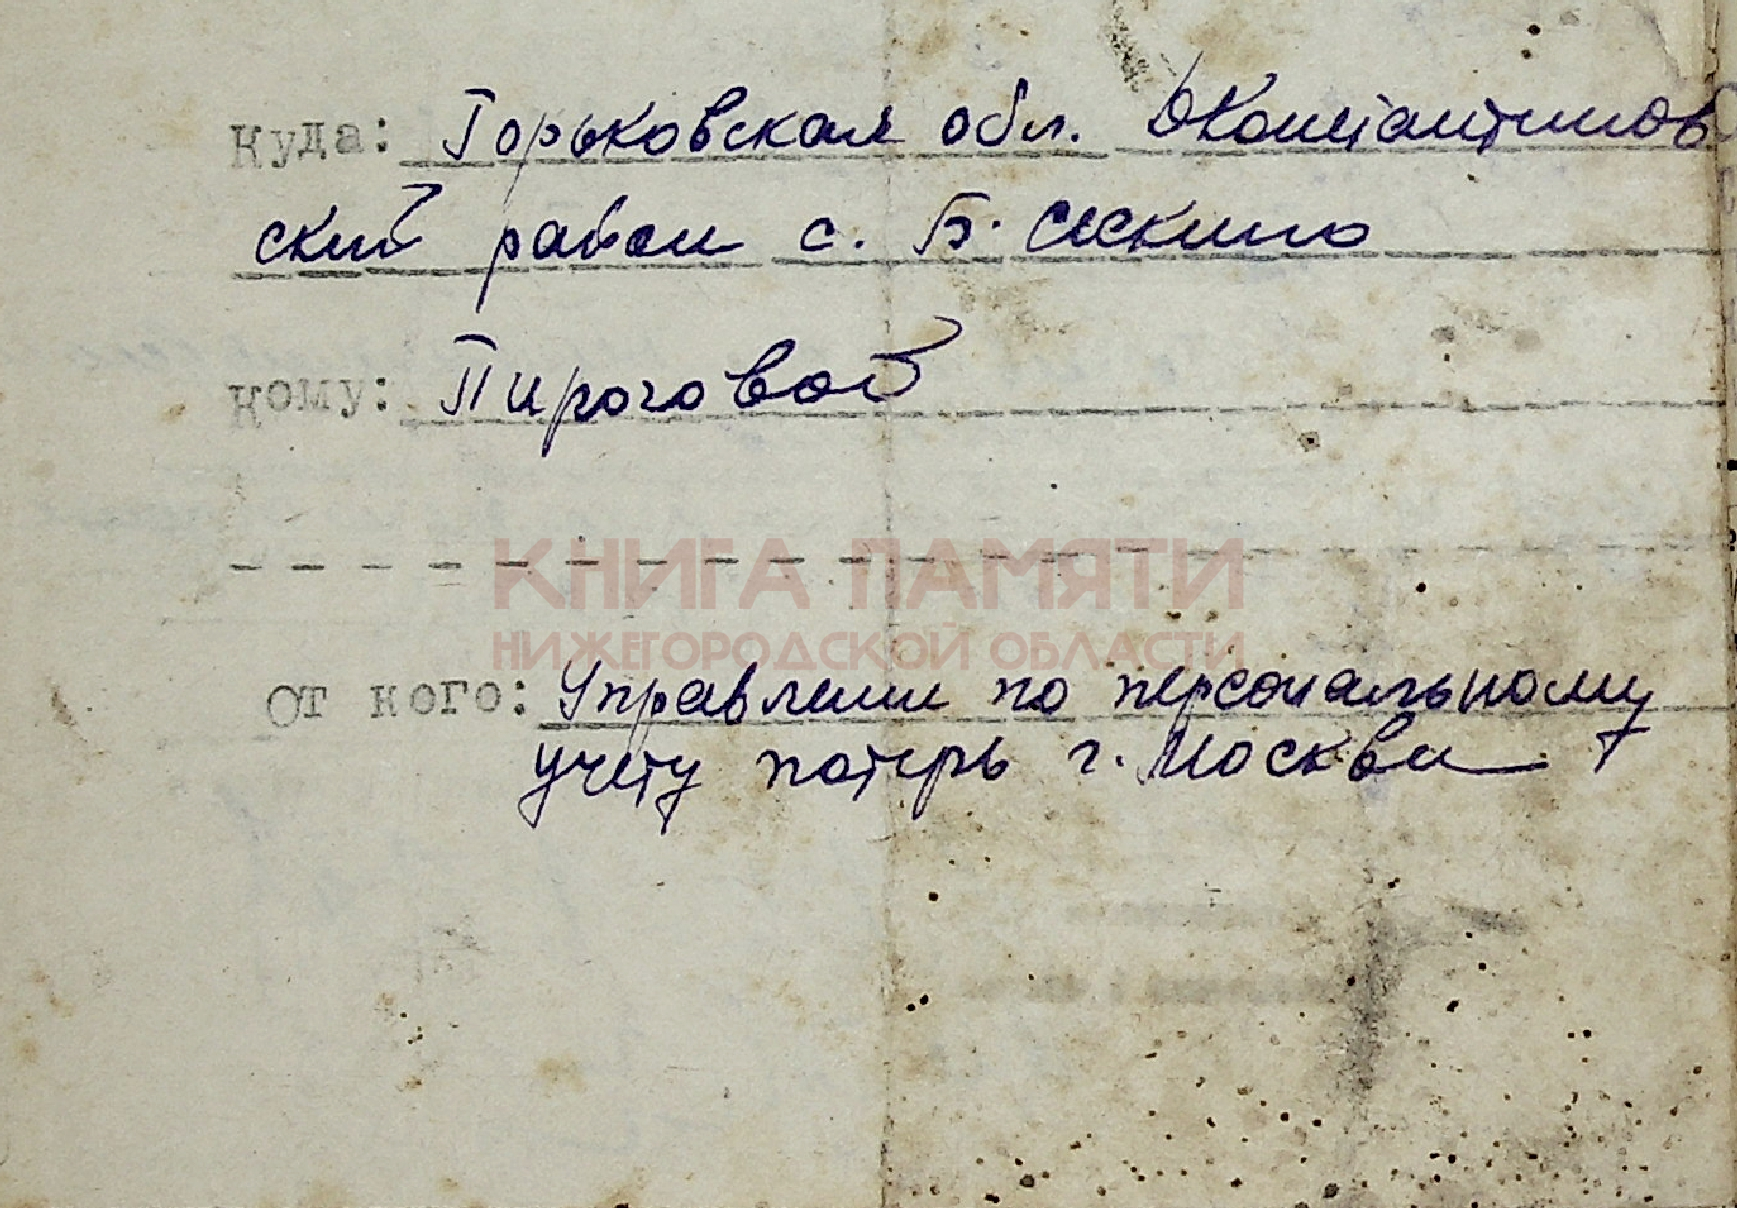 Куда: Горьковская обл. Д Константинов
ский район с. Б. Сескино
Кому: Пироговой
КНИГА ПАМЯТИ
НИЖЕГОРОДСКОЙ ОБЛАСТИ
От кого: Управлении по персональному
учету потерь г. Москва